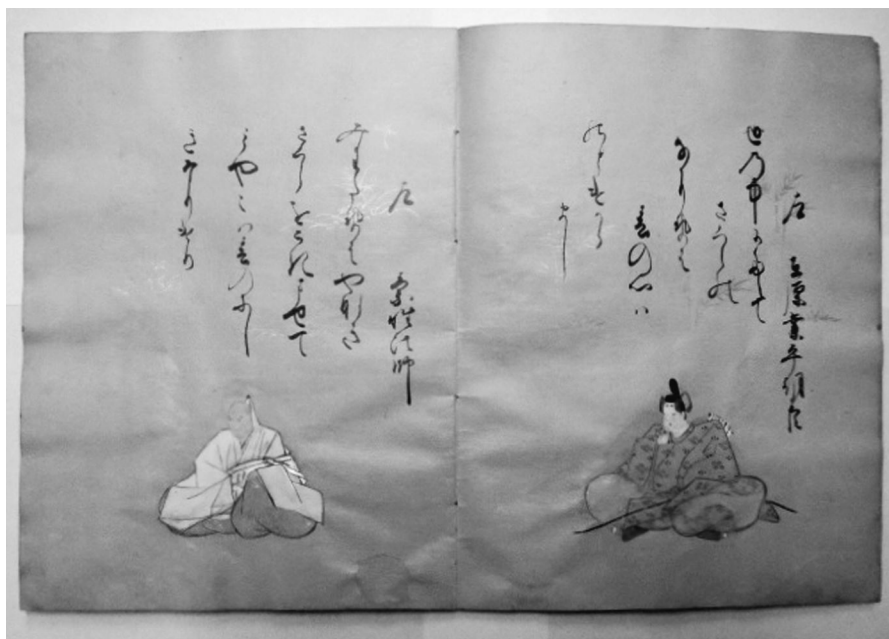 左 在原業平朝臣
世乃中にたえて
さくらの
なかりせは
春の心ハ
のとけから
まし
左 素性法師
みわたせはやなき
さくらをこきませて
ミやこハ春乃にし
きなりけり